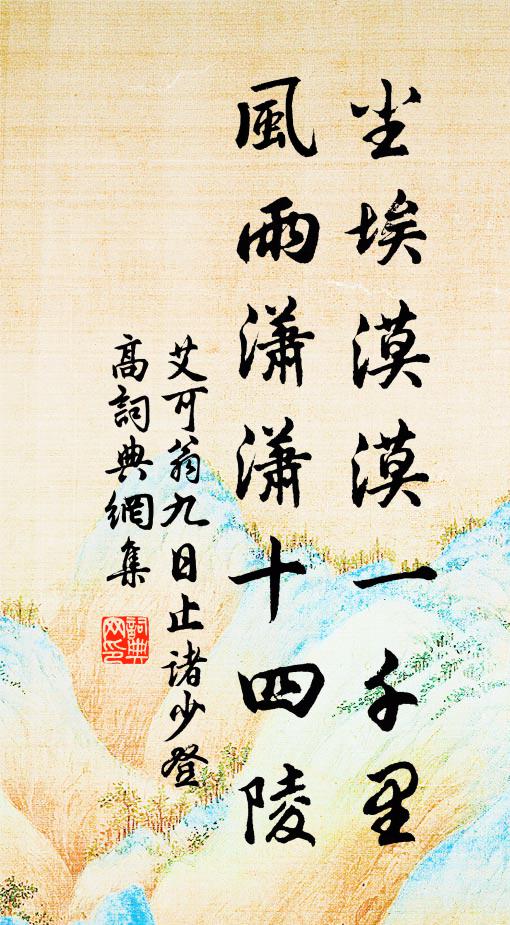 尘埃漠漠一千里
風雨瀟瀟十四陵
艾可翁九日止诸少登
高詞典網集
詞典网印